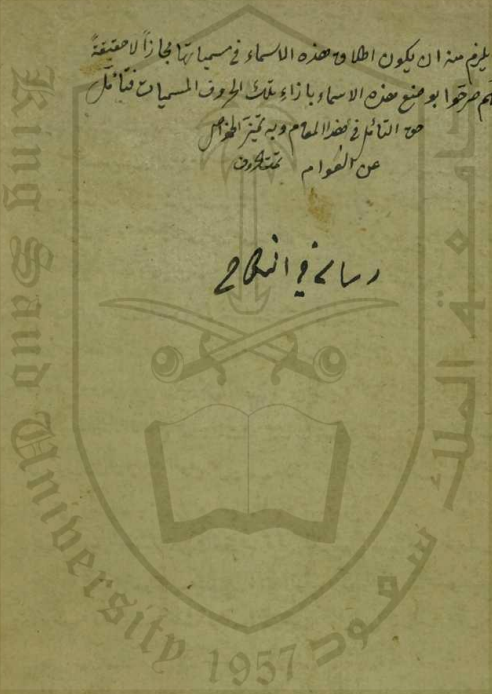 يلزم منه ان يكون اطلاق هذه الاسماء في مسمياتها مجازاً لا حقيقةً
هم صرحوا بوضع هذه الاسماء بازاء تلك الحروف المسميات فتأمل
حق التأمل في هذا المقام وبه تميز الخواص
عن العوام تمت الحروف
رسالة في النكاح
جامعة الملك سعود
King Saud University
1957